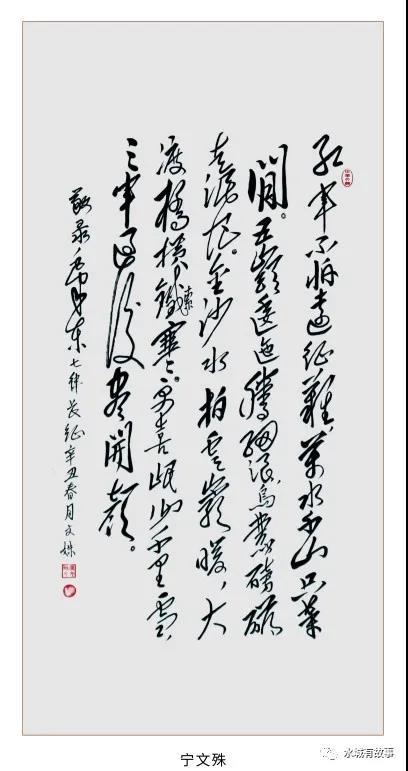 红军不怕远征难萬水千山只等
閒。五嶺逶迤腾细浪烏蒙磅礴
走泥丸。金沙水拍雲崖暖,大
渡橋横鐵索寒。更喜岷山千里雪,
三军過後尽開颜。
敬录毛泽东七律长征辛丑春月文殊
宁文殊
水城有故事